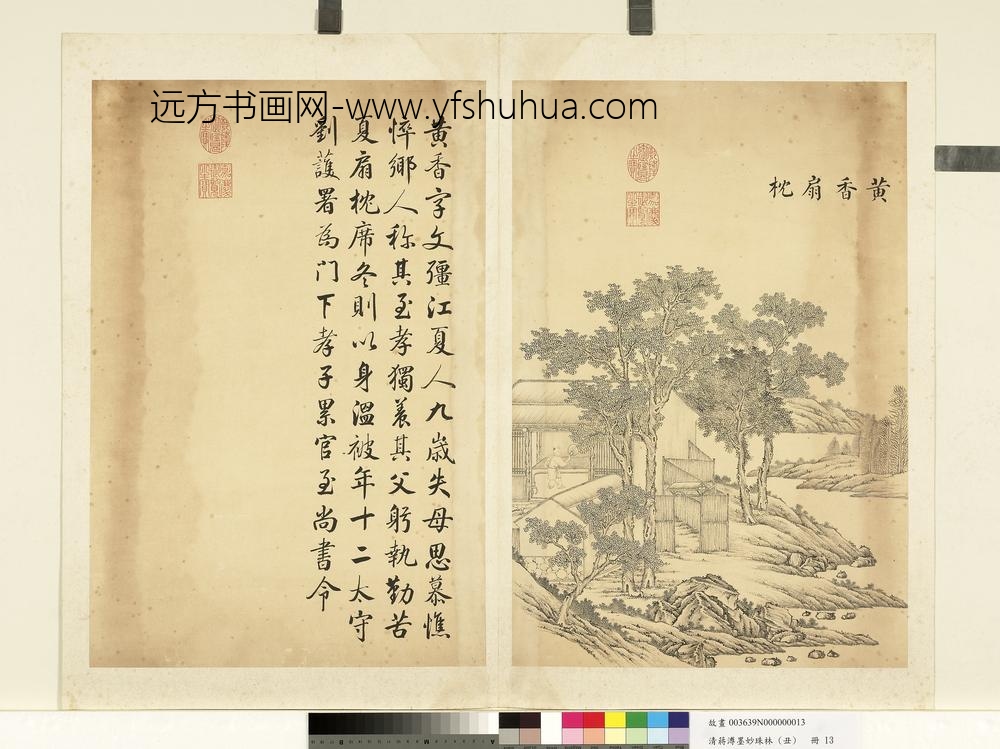 远方书画网-www.yfshuhua.com
黄香扇枕
黄香字文彊江夏人九歲失母思慕憔
悴鄉人称其至孝獨养其父躬執勤苦
夏扇枕席冬則以身溫被年十二太守
劉護署為門下孝子累官至尚書令
故畫 003639N000000013
清蔣溥墨妙珠林（丑） 冊 13